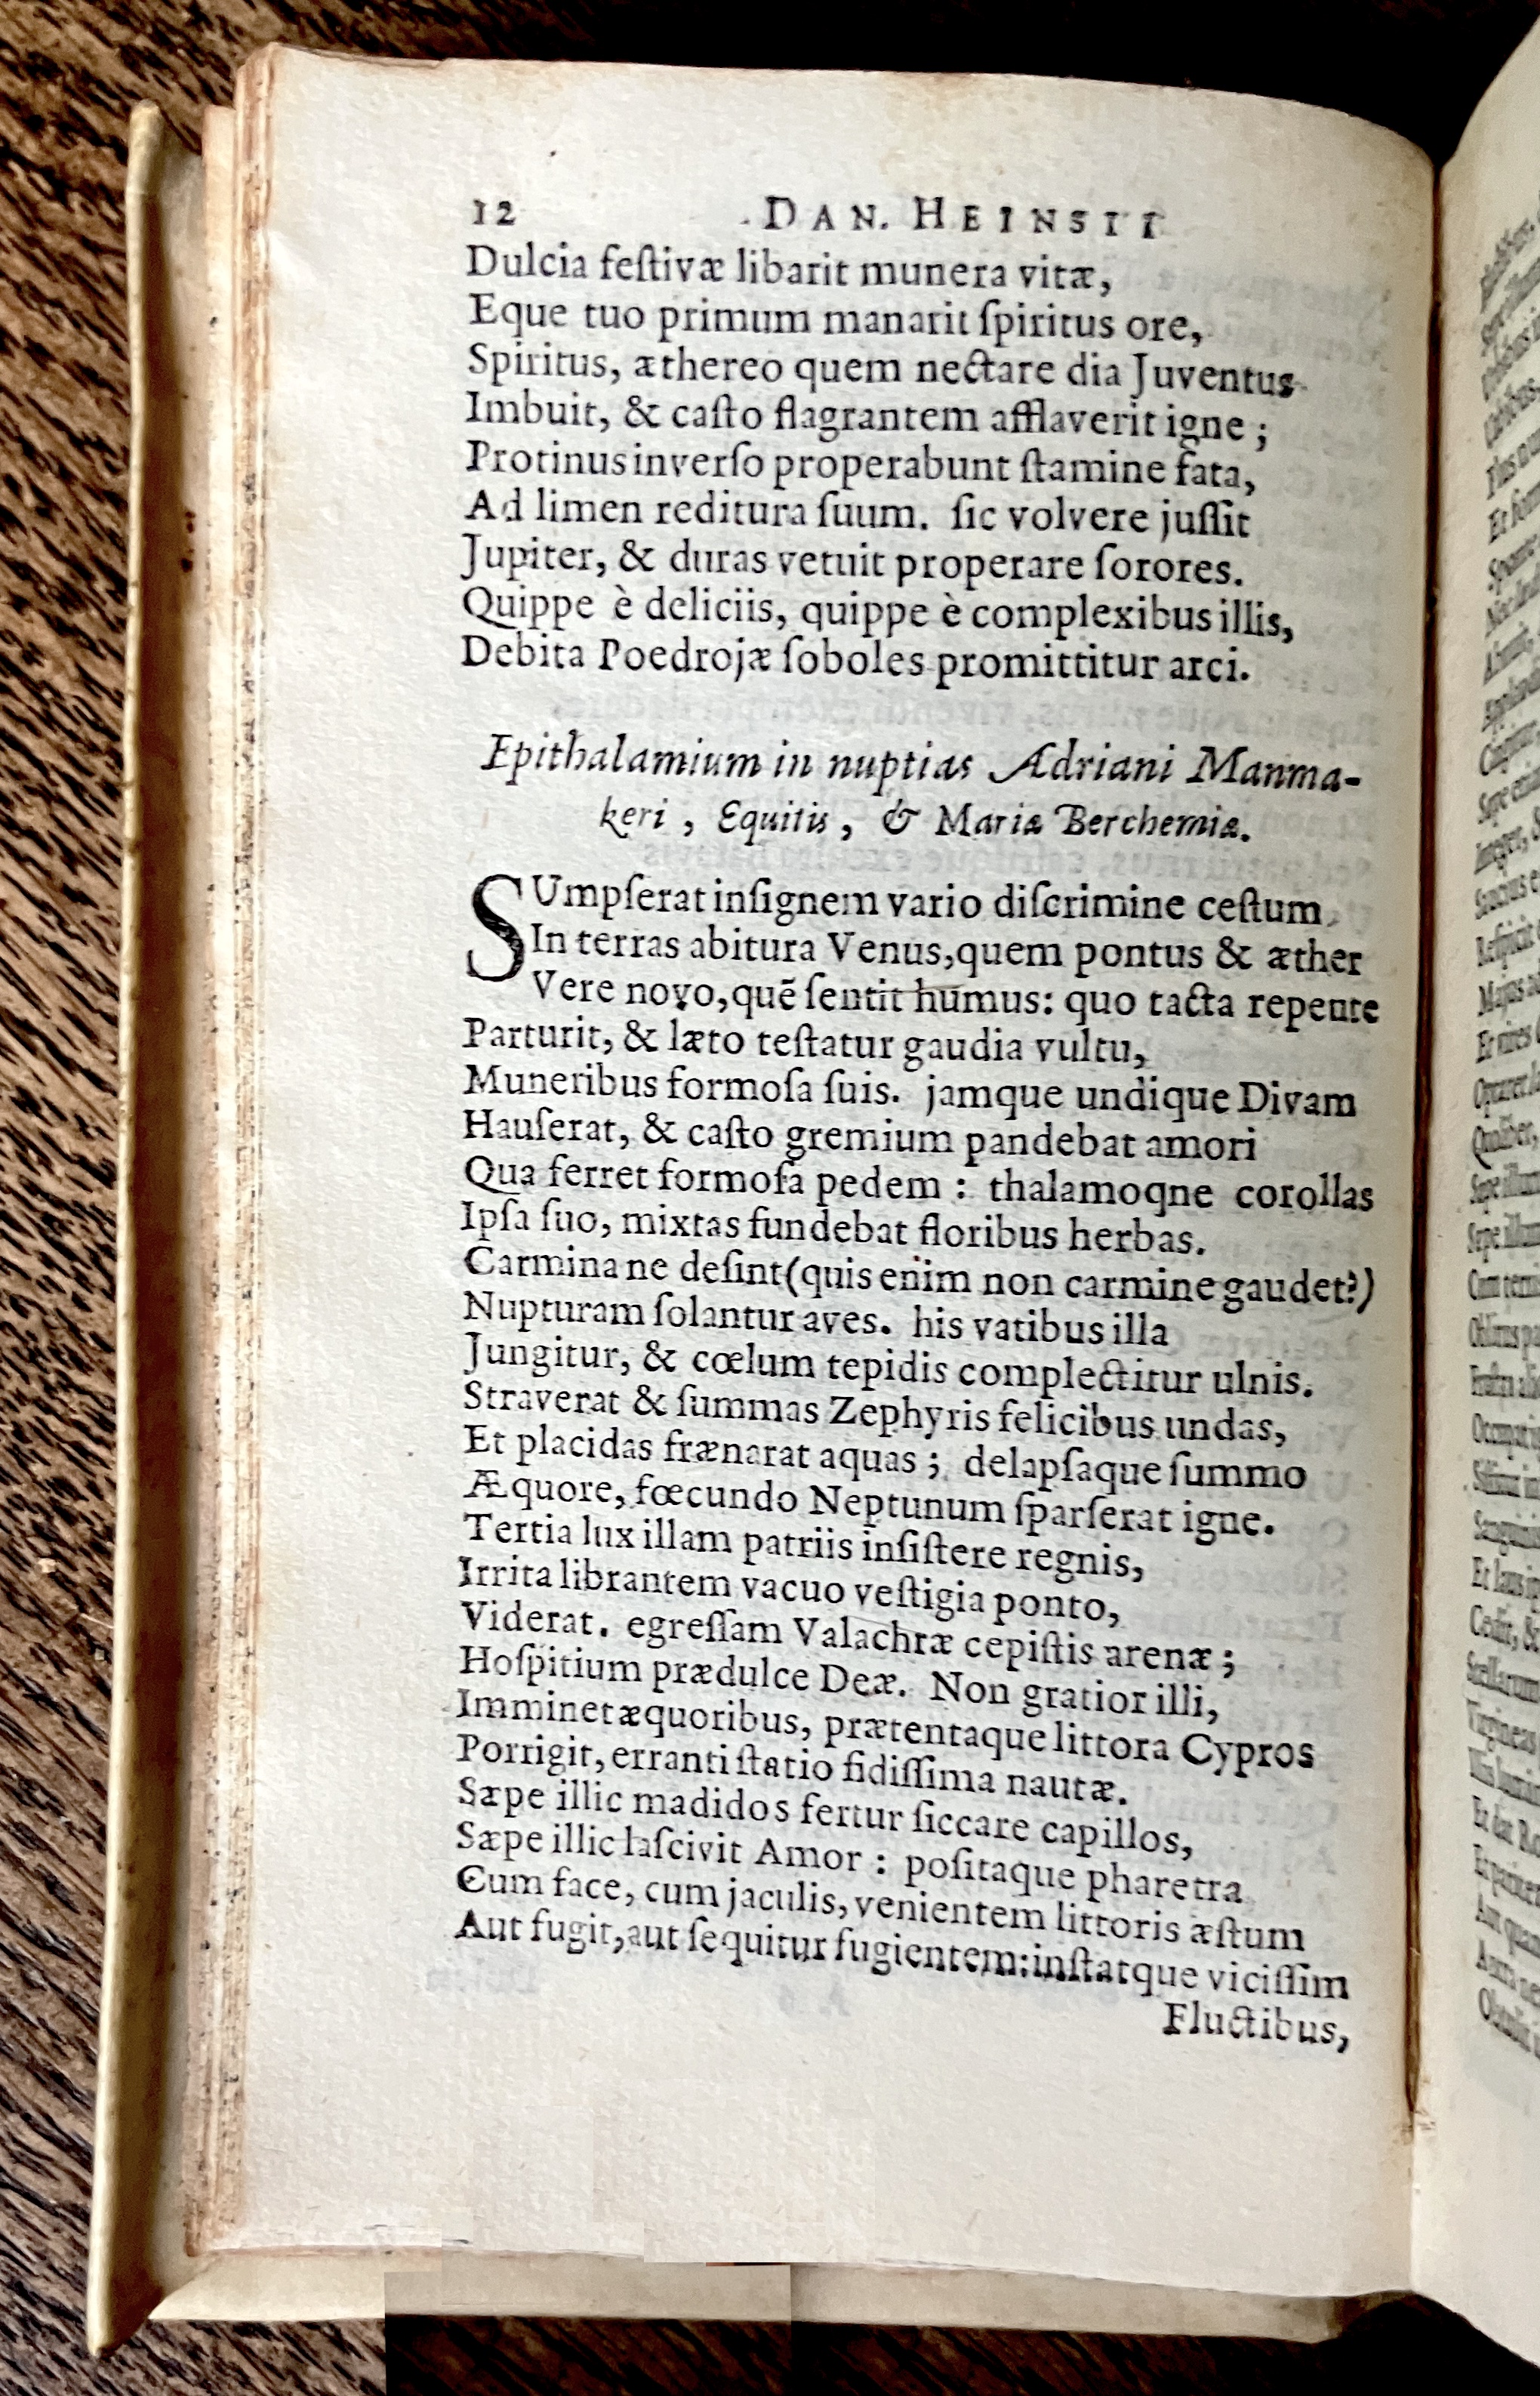 12 DAN. HEINSII
Dulcia feſtivæ libarit munera vitæ,
Eque tuo primum manarit ſpiritus ore,
Spiritus, æthereo quem nectare dia Juventus
Imbuit, & caſto flagrantem afflaverit igne ;
Protinus inverſo properabunt ſtamine fata,
Ad limen reditura ſuum. ſic volvere juſſit
Jupiter, & duras vetuit properare ſorores.
Quippe è deliciis, quippe è complexibus illis,
Debita Poedrojæ ſoboles promittitur arci.
Epithalamium in nuptias Adriani Manma-
keri , Equitis , & Mariæ Berchemiæ.
SUmpſerat inſignem vario diſcrimine ceſtum
In terras abitura Venus, quem pontus & æther
Vere novo, quẽ ſentit humus: quo tacta repente
Parturit, & læto teſtatur gaudia vultu,
Muneribus formoſa ſuis. jamque undique Divam
Hauſerat, & caſto gremium pandebat amori
Qua ferret formoſa pedem : thalamoqne corollas
Ipſa ſuo, mixtas fundebat floribus herbas.
Carmina ne deſint (quis enim non carmine gaudet?)
Nupturam ſolantur aves. his vatibus illa
Jungitur, & cœlum tepidis complectitur ulnis.
Straverat & ſummas Zephyris felicibus undas,
Et placidas frænarat aquas ; delapſaque ſummo
Æquore, fœcundo Neptunum ſparſerat igne.
Tertia lux illam patriis inſiſtere regnis,
Irrita librantem vacuo veſtigia ponto,
Viderat. egreſſam Valachræ cepiſtis arenæ ;
Hoſpitium prædulce Deæ. Non gratior illi,
Imminet æquoribus, prætentaque littora Cypros
Porrigit, erranti ſtatio fidiſſima nautæ.
Sæpe illic madidos fertur ſiccare capillos,
Sæpe illic laſcivit Amor : poſitaque pharetra
Cum face, cum jaculis, venientem littoris æſtum
Aut fugit, aut ſequitur fugientem: inſtatque viciſſim
Fluctibus,